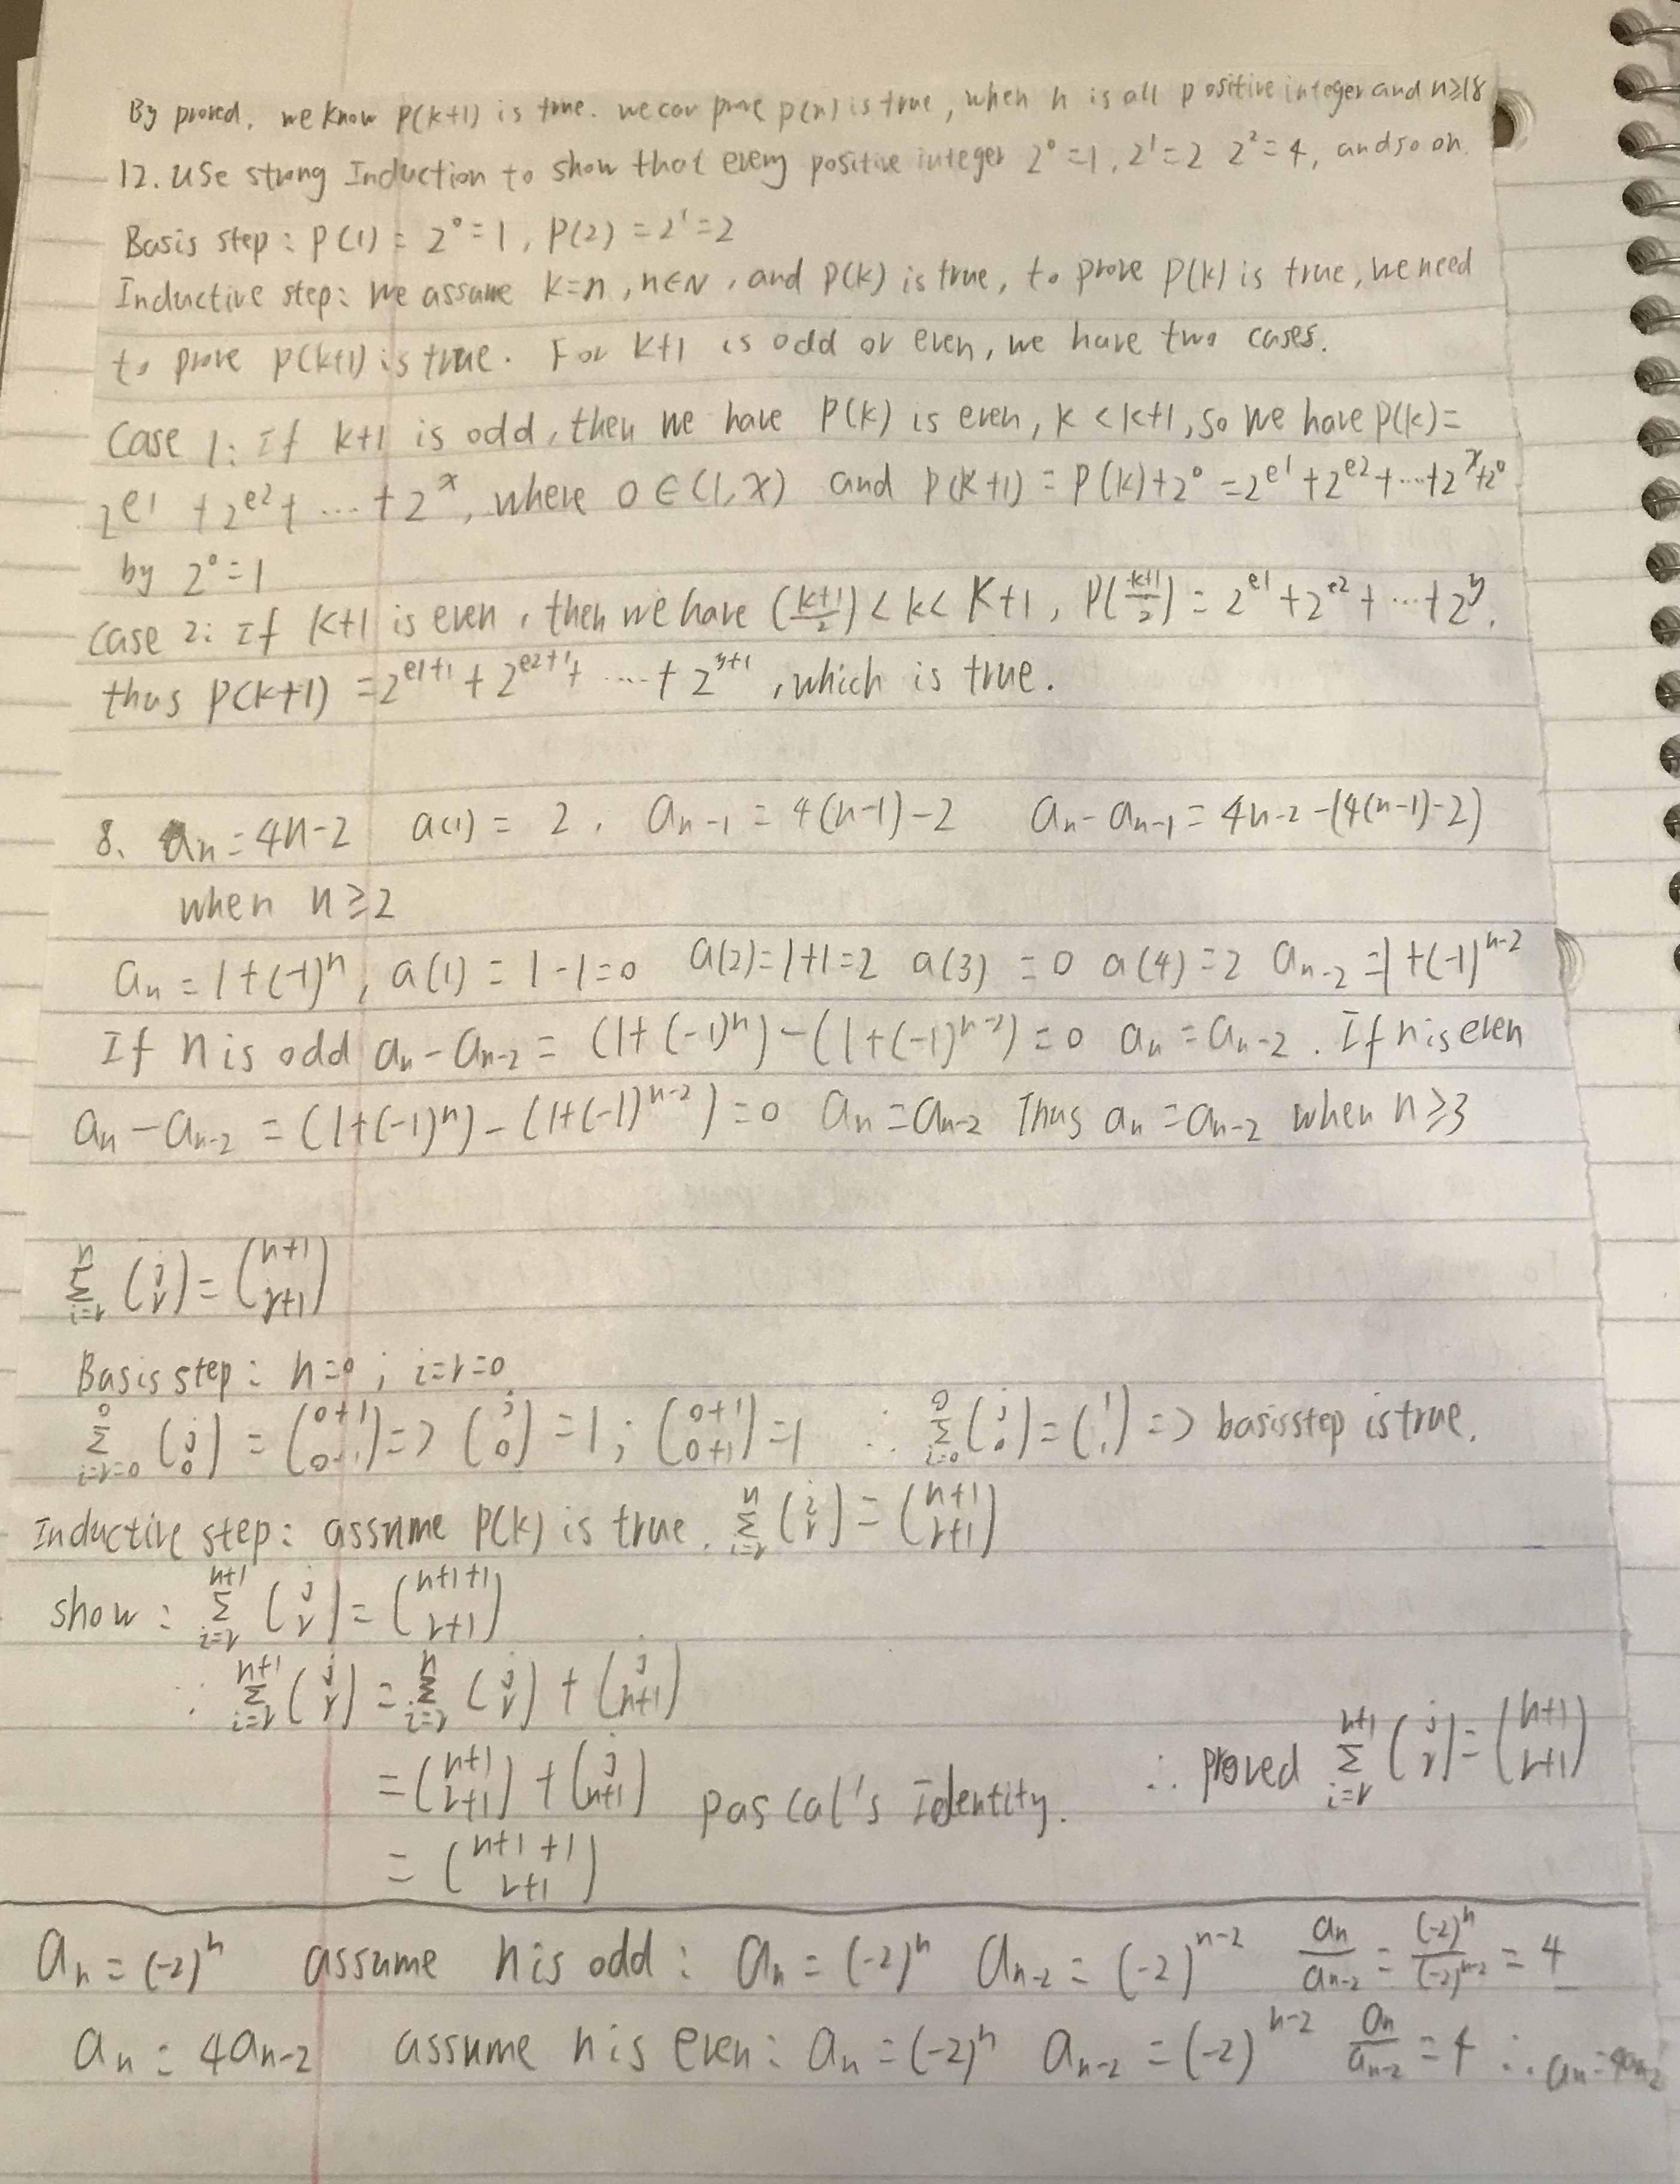 By proved, we know P(k+1) is true. we can prove p(n) is true, when n is all positive integer and n≥18
12. Use strong Induction to show that every positive integer 2⁰=1, 2¹=2 2²=4, and so on.
Basis step: P(1) = 2⁰=1, P(2) = 2¹=2
Inductive step: we assume k=n, n∈N, and P(k) is true, to prove P(k) is true, we need
to prove P(k+1) is true. For k+1 is odd or even, we have two cases.
Case 1: If k+1 is odd, then we have P(k) is even, k < k+1, so we have P(k)=
2^e1 + 2^e2 + ... + 2^x, where 0 ∈ (1, x) and P(k+1) = P(k)+2⁰ = 2^e1 + 2^e2 + ... + 2^x + 2⁰
by 2⁰=1
Case 2: If k+1 is even, then we have (k+1/2) < k < k+1, P(k+1/2) = 2^e1 + 2^e2 + ... + 2^y.
thus P(k+1) = 2^e1+1 + 2^e2+1 + .... + 2^y+1, which is true.
8. an = 4n-2 a(1) = 2, an-1 = 4(n-1)-2 an - an-1 = 4n-2-(4(n-1)-2)
when n≥2
an = 1+(-1)^n, a(1) = 1-1=0 a(2)=1+1=2 a(3) = 0 a(4)=2 an-2 = 1+(-1)^n-2
If n is odd an - an-2 = (1+(-1)^n) - (1+(-1)^n-2) = 0 an = an-2. If n is even
an - an-2 = (1+(-1)^n) - (1+(-1)^n-2) = 0 an = an-2 Thus an = an-2 when n≥3
n Σ i=r (j r) = (n+1 r+1)
Basis step: n=0; i=r=0
0 Σ i=r=0 (j 0) = (0+1 0+1) => (j 0) = 1; (0+1 0+1) = 1 ∴ 0 Σ i=0 (j 0) = (1 1) => basis step is true.
Inductive step: assume P(k) is true. n Σ i=r (j r) = (n+1 r+1)
show: n+1 Σ i=r (j r) = (n+1+1 r+1)
∵ n+1 Σ i=r (j r) = n Σ i=r (j r) + (j n+1)
= (n+1 r+1) + (j n+1) pascal's Identity. ∴ proved n+1 Σ i=r (j r) = (n+1 r+1)
= (n+1+1 r+1)
an = (-2)^n assume n is odd: an = (-2)^n an-2 = (-2)^n-2 an/an-2 = (-2)^n/(-2)^n-2 = 4
an = 4an-2 assume n is even: an = (-2)^n an-2 = (-2)^n-2 an/an-2 = 4 ∴ an = 4an-2